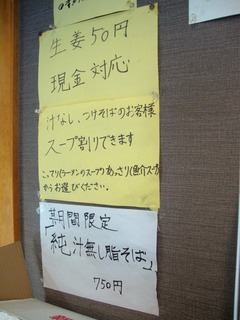 生姜50円
現金対応
汁なし、つけそばのお客様
スープ割りできます
こってり(ラーメンのスープ)あっさり(魚介スープ)
からお選びください。
期間限定
「純汁無し脂そば」
750円